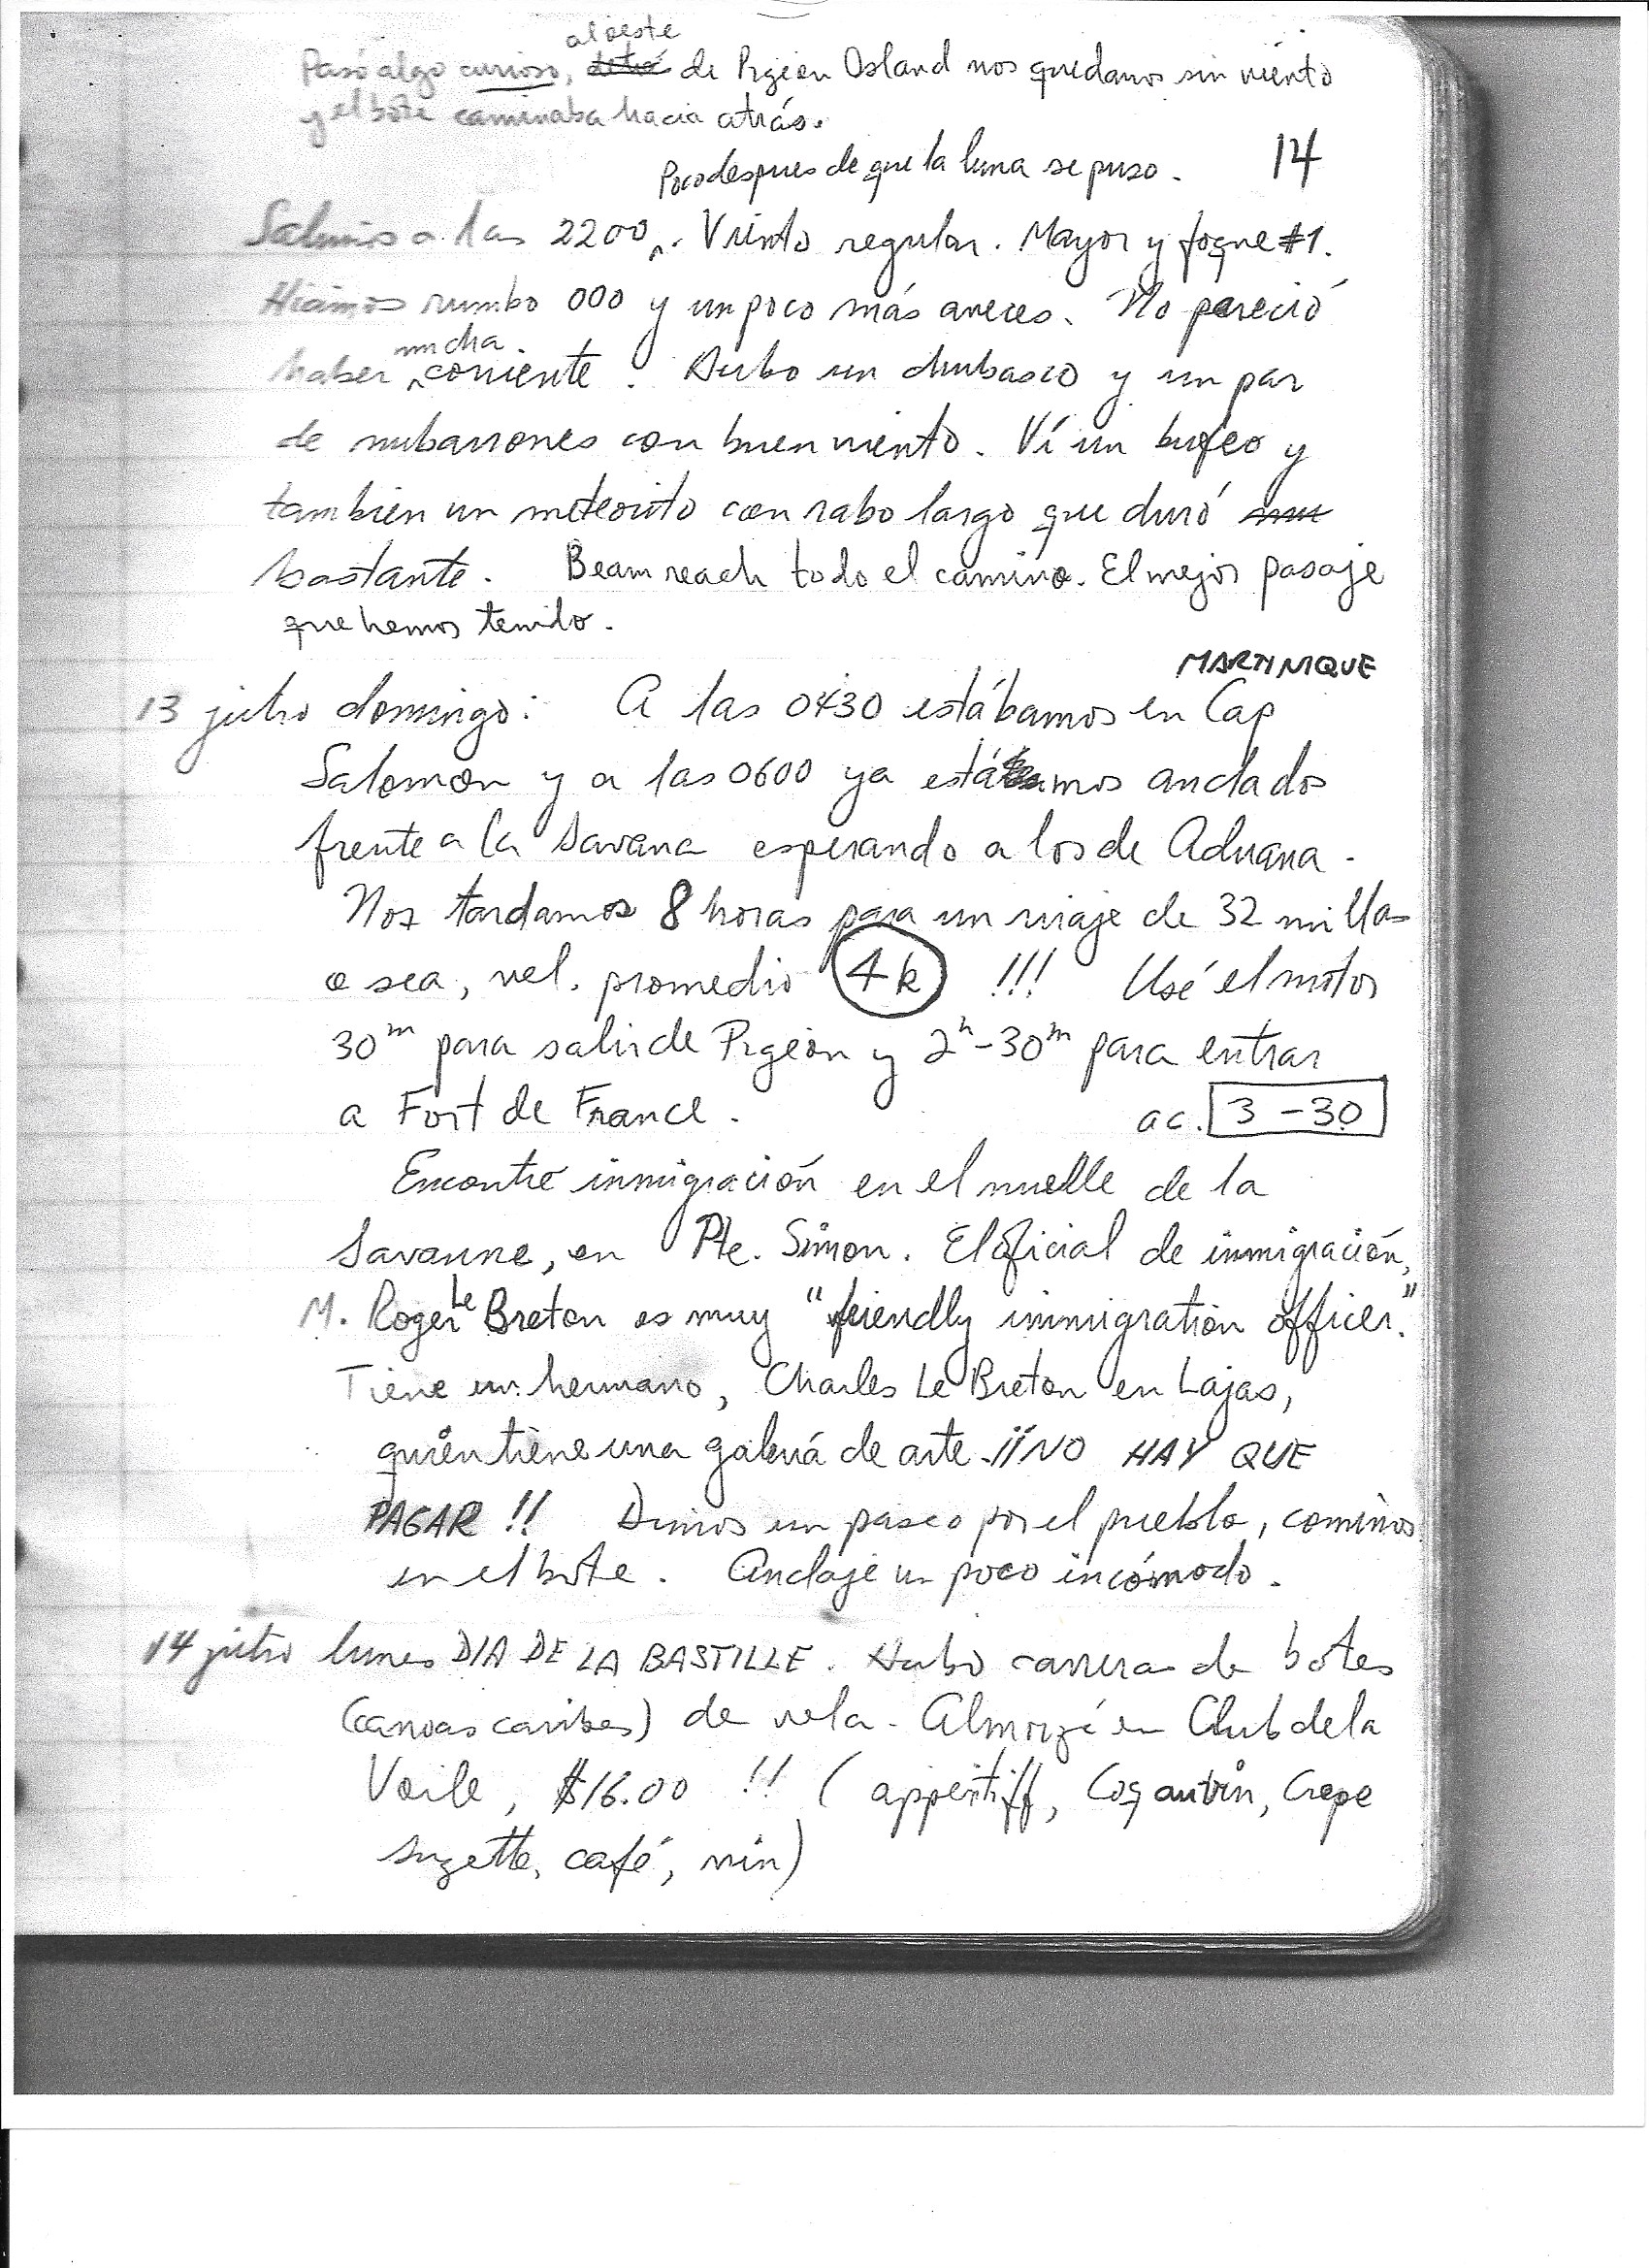 al oeste
Pasó algo curioso, detrás de Pigeon Island nos quedamos sin viento
y el bote caminaba hacia atrás.
Poco despues de que la luna se puso. 14
Salimos a las 2200. Viento regular. Mayor y foque #1.
Hicimos rumbo 000 y un poco más aveces. No pareció
mucha
haber corriente. Hubo un chubasco y un par
de nubarrones con buen viento. Ví un bufeo y
tambien un meteorito con rabo largo que duró mu
bastante. Beam reach todo el camino. El mejor pasaje
que hemos tenido.
MARTINIQUE
13 julio domingo: A las 0430 estábamos en Cap
Salomon y a las 0600 ya estábamos anclados
frente a la Savana esperando a los de Aduana.
Nos tardamos 8 horas para un viaje de 32 millas
o sea, vel. promedio 4k !!! Usé el motor
30m para salir de Pigeon y 2h-30m para entrar
a Fort de France. ac. 3-30
Encontré inmigración en el muelle de la
Savanne, en Pte. Simon. El oficial de inmigración,
M. Roger Le Breton es muy "friendly immigration officer."
Tiene un hermano, Charles Le Breton en Lajas,
quien tiene una galería de arte. ¡¡NO HAY QUE
PAGAR!! Dimos un paseo por el pueblo, comimos
en el bote. Anclaje un poco incómodo.
14 julio lunes DIA DE LA BASTILLE. Hubo carreras de botes
(canoas caribes) de vela. Almorzé en Club de la
Voile, $16.00 !! (appertiff, Coq au vin, Crepe
suzette, café, vin)